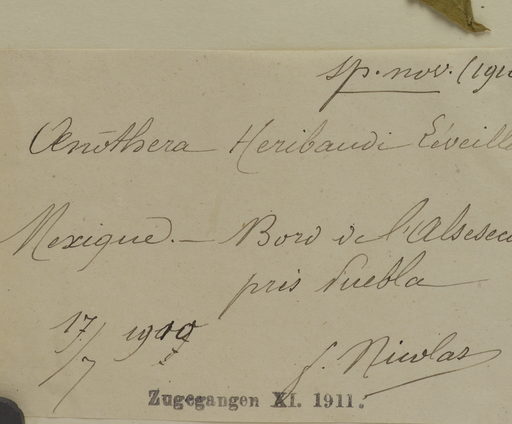 sp. nov. (191
Œnōthera Heribaudi Léveillé
Mexique. — Bord de l'Alseseca
près Puebla
17/7 1910
J. Nicolas
Zugegangen XI. 1911.